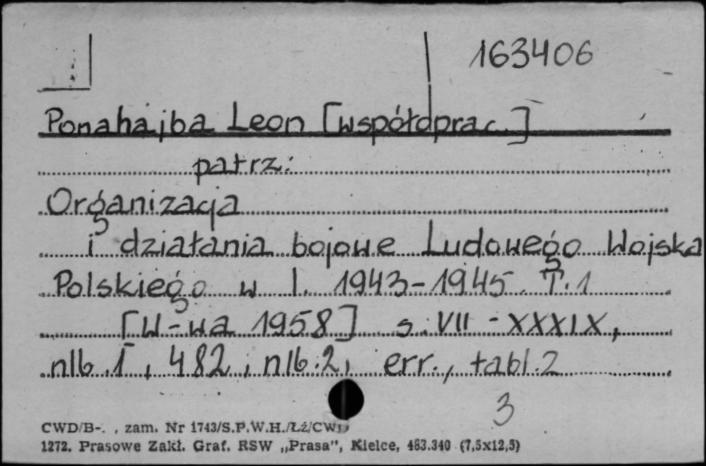 163406
Ponahajba Leon [współoprac.]
patrz:
Organizacja
i działania bojowe Ludowego Wojska
Polskiego w l. 1943-1945. T.1
[W-wa 1958] s. VII - XXXIX,
nlb. 1, 482, nlb. 2, err., tabl. 2
3
CWD/B-. , zam. Nr 1743/S.P.W.H./Łź/CWD
1272. Prasowe Zakł. Graf. RSW „Prasa”, Kielce, 483.340 (7,5x12,5)